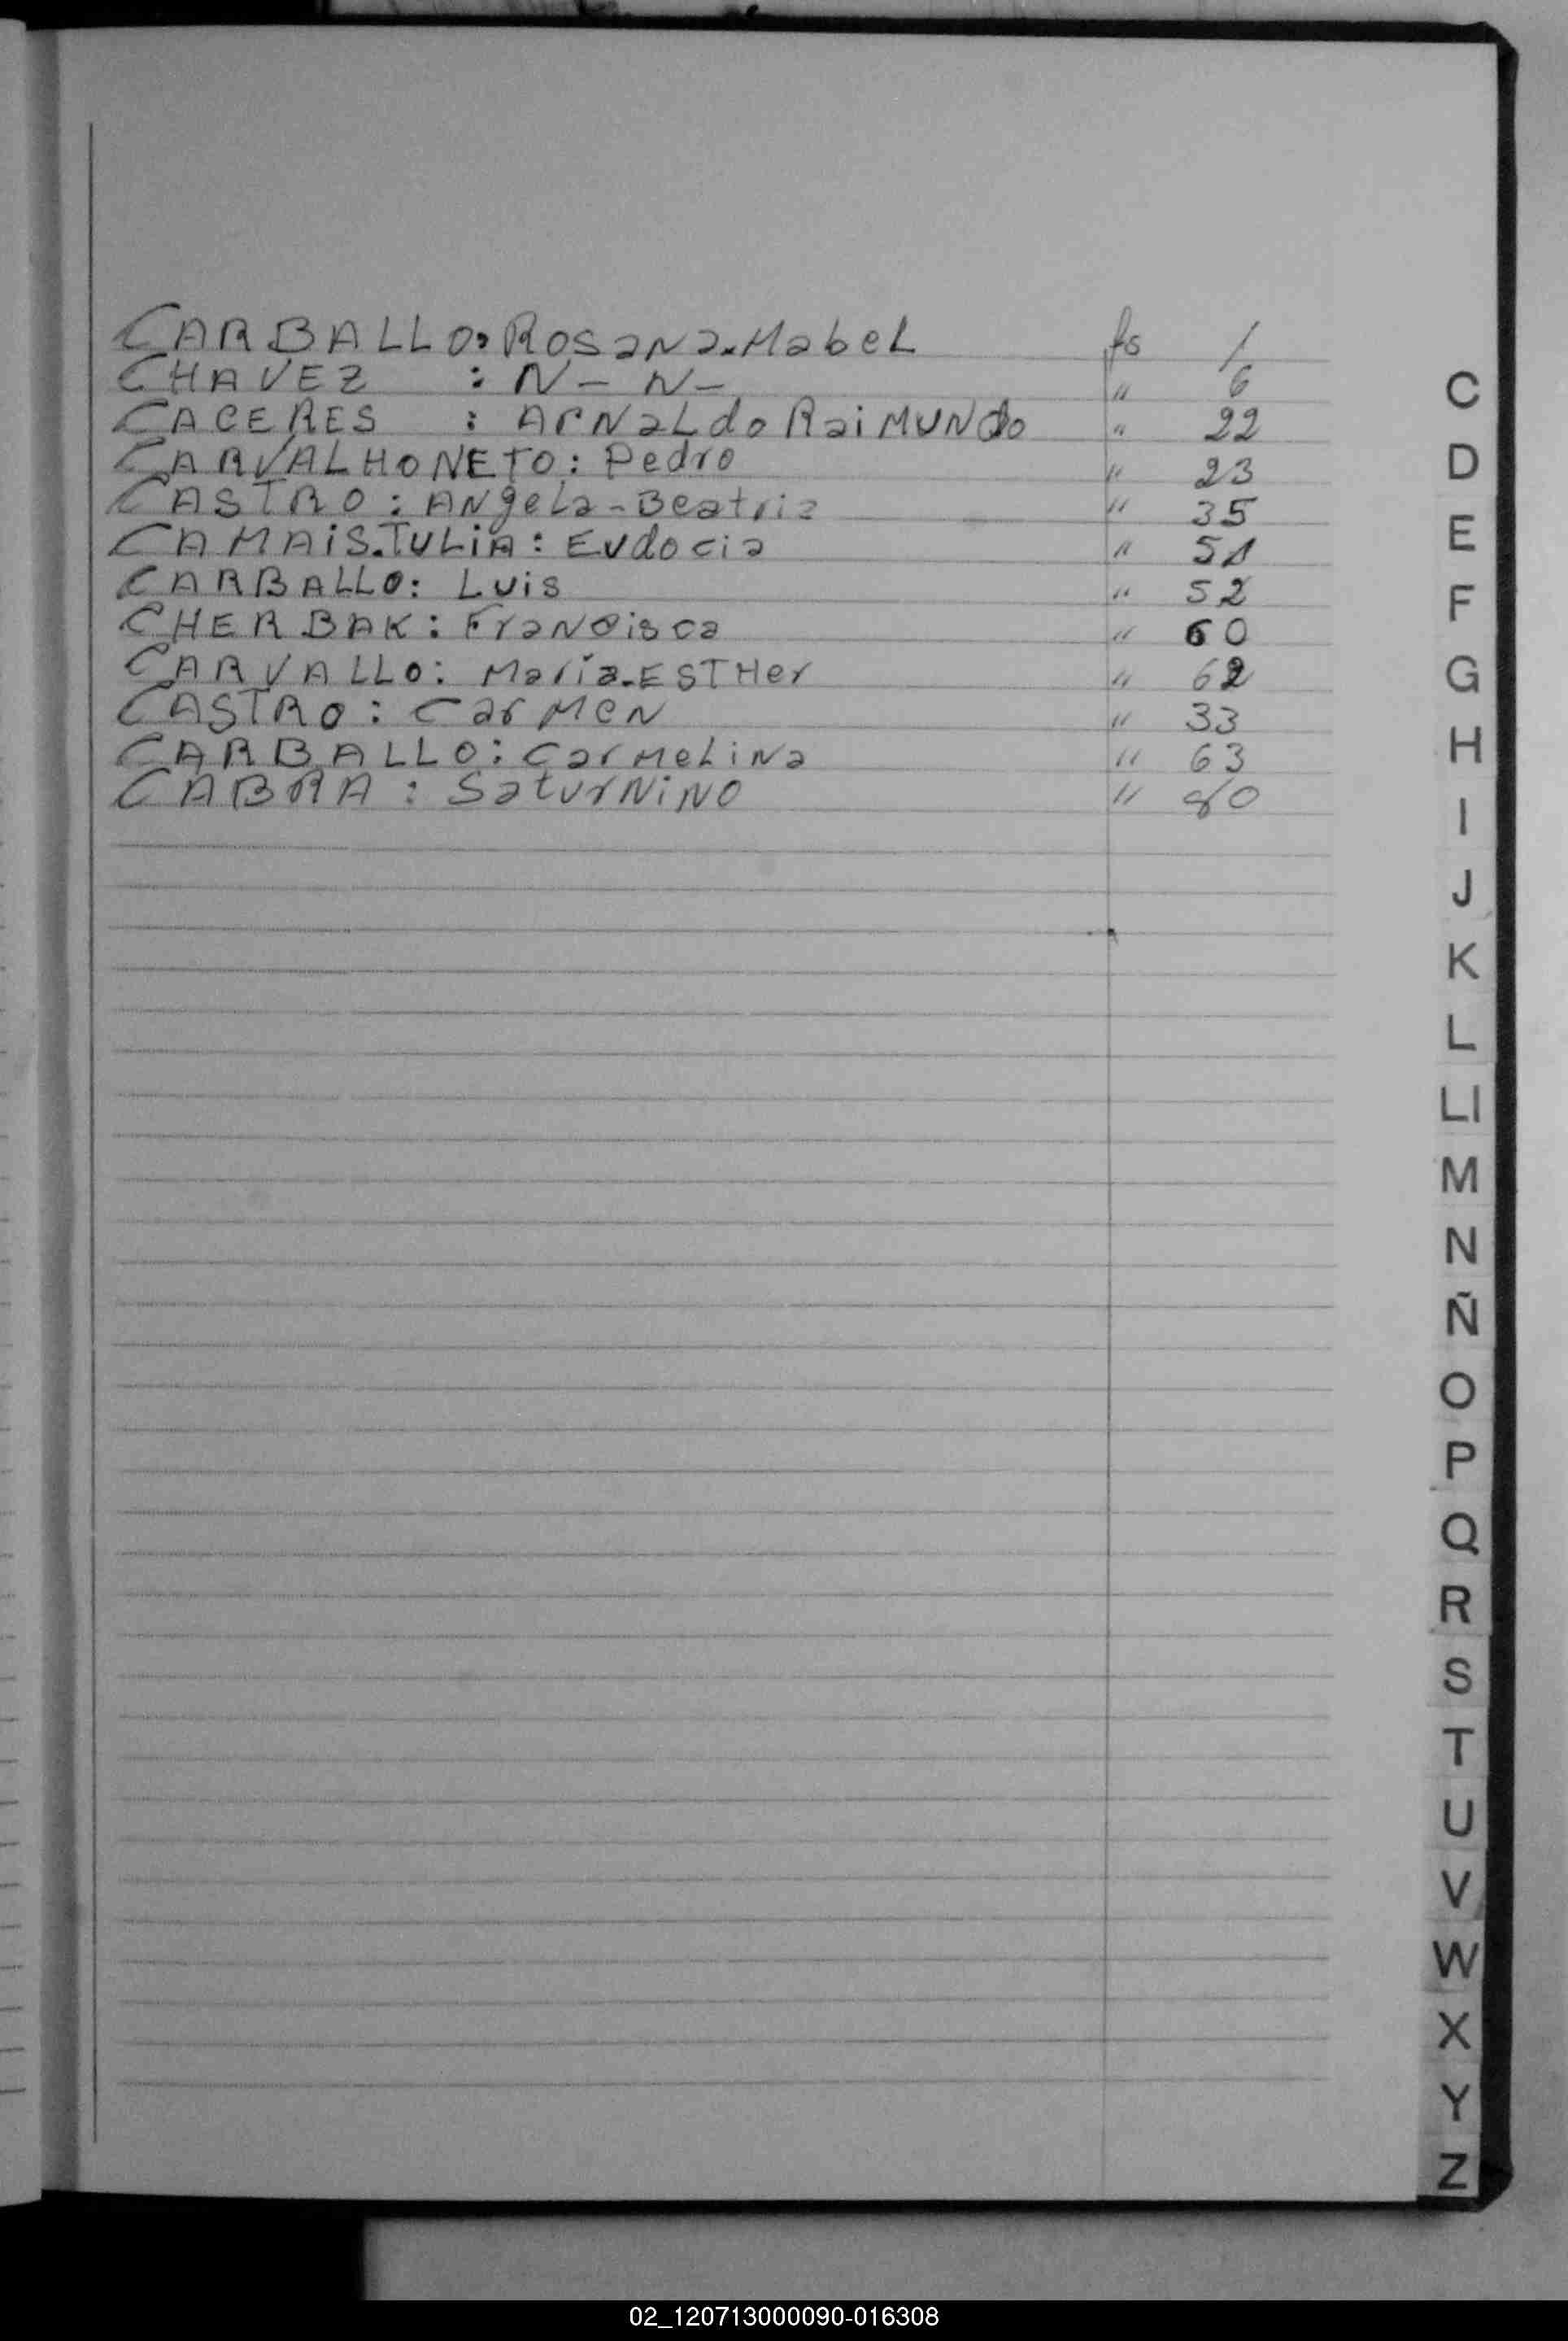 CARBALLO: Rosana.Mabel fs 1
CHAVEZ : N- N- " 6
CACERES : Arnaldo Raimundo " 22
CARVALHO NETO: Pedro " 23
CASTRO: Angela-Beatriz " 35
CAMAIS.TULIA: Eudocia " 51
CARBALLO: Luis " 52
CHERBAK: Francisca " 60
CARVALLO: María-ESTHer " 62
CASTRO: Carmen " 33
CARBALLO: Carmelina " 63
CABRA: Saturnino " 80
C
D
E
F
G
H
I
J
K
L
Ll
M
N
Ñ
O
P
Q
R
S
T
U
V
W
X
Y
Z
02_120713000090-016308